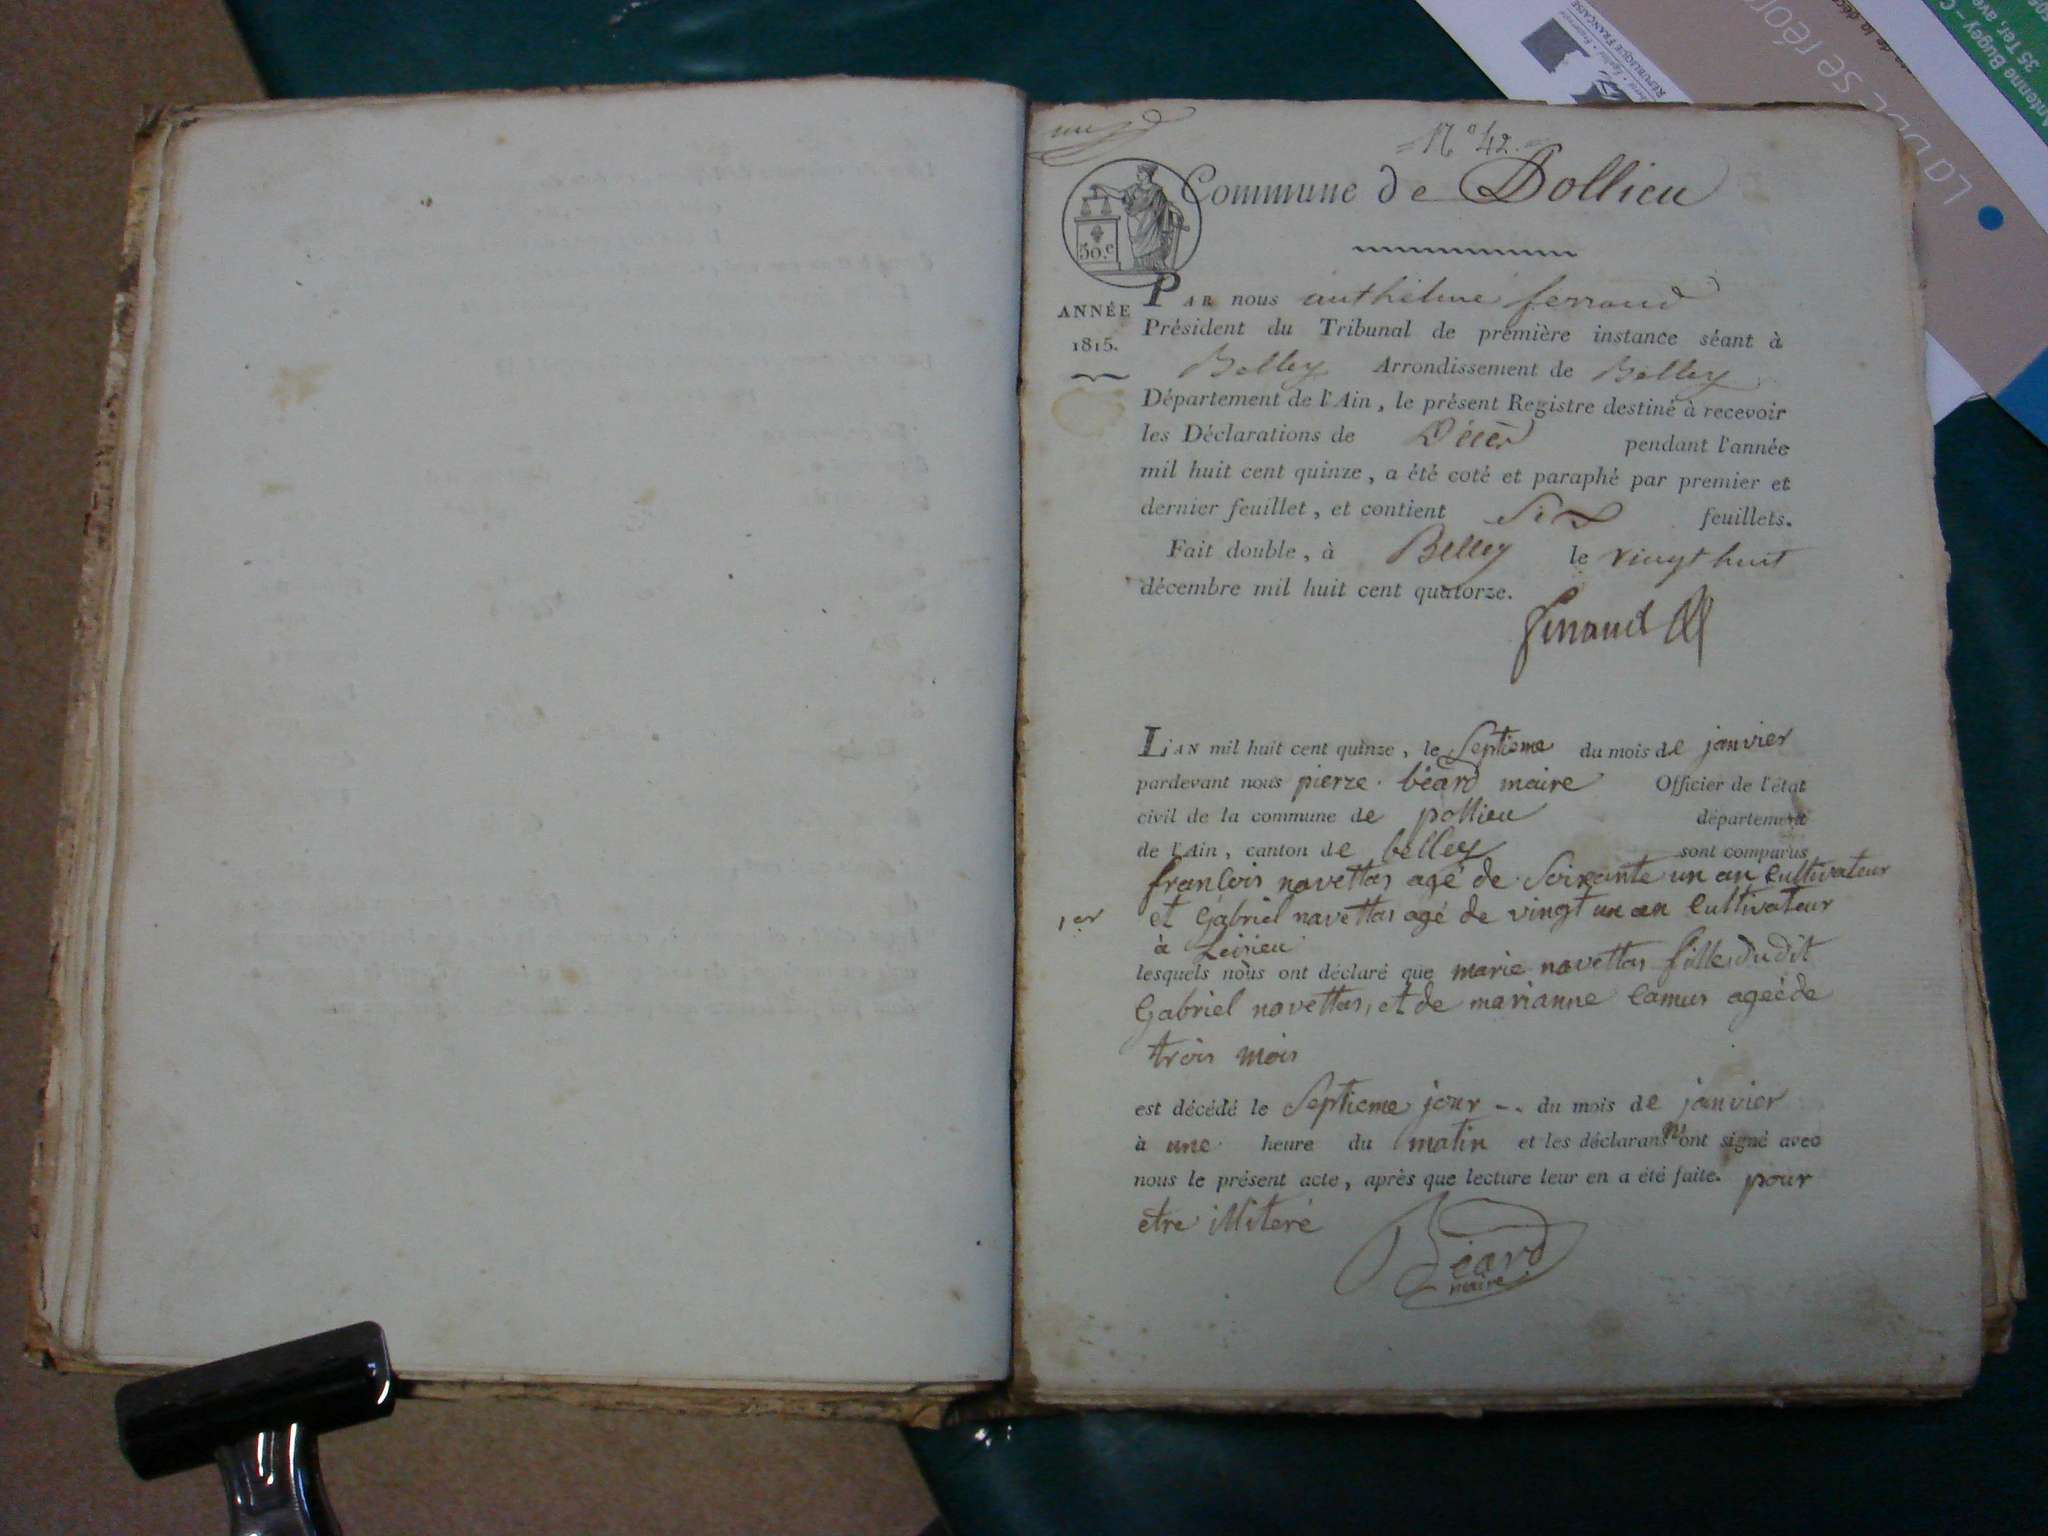 N.º 42.
Commune de Pollieu
50.c
ANNÉE
1815.
PAR nous anthelme ferrand
Président du Tribunal de première instance séant à
Belley Arrondissement de Belley
Département de l'Ain, le présent Registre destiné à recevoir
les Déclarations de Décès pendant l'année
mil huit cent quinze, a été coté et paraphé par premier et
dernier feuillet, et contient Six feuillets.
Fait double, à Belley le vingt huit
décembre mil huit cent quatorze.
ferrand
L'AN mil huit cent quinze, le Septieme du mois de janvier
pardevant nous pierre béard maire Officier de l'état
civil de la commune de pollieu département
de l'Ain, canton de belley sont comparus
françois navettas agé de Soixante un an Cultivateur
1.er et Gabriel navettas agé de vingt un an Cultivateur
à
lesquels nous ont déclaré que marie navettas fille dudit
Gabriel navettas, et de marianne Camus ageéde
trois mois
est décédé le Septieme jour -. du mois de janvier
à une heure du matin et les déclarans n'ont signé avec
nous le présent acte, après que lecture leur en a été faite. pour
etre illiteré
Béard
maire
La DDE se réor
RÉPUBLIQUE FRANÇAISE
Antenne Bugey - C
35 Ter, ave